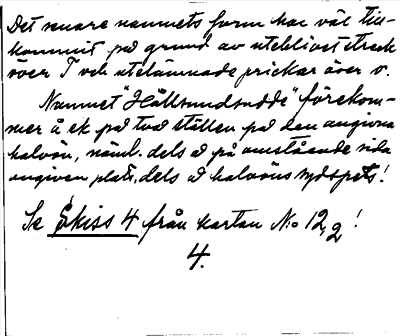 Det senare namnets form har väl till-
kommit på grund av uteblivet streck
över T och utelämnade prickar över o.
Namnet "Hällsundsudde" förekom-
mer å ek på två ställen på den angivna
halvön, näml. dels å på omstående sida
angiven plats, dels å halvöns sydspets!
Se Skiss 4 från kartan N:o 12,2!
4.